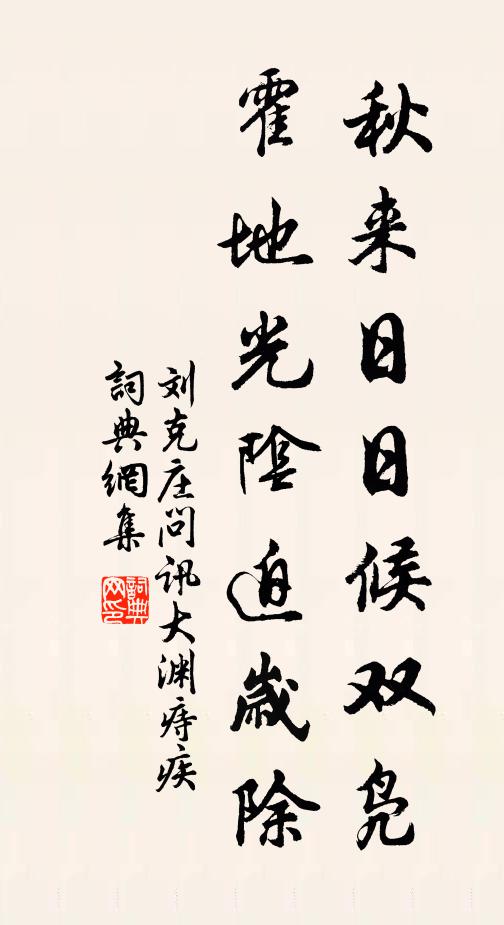 秋来日日候双凫
霍地光陰迫歲除
刘克庄問訊大渊痔疾
詞典網集
詞典網印